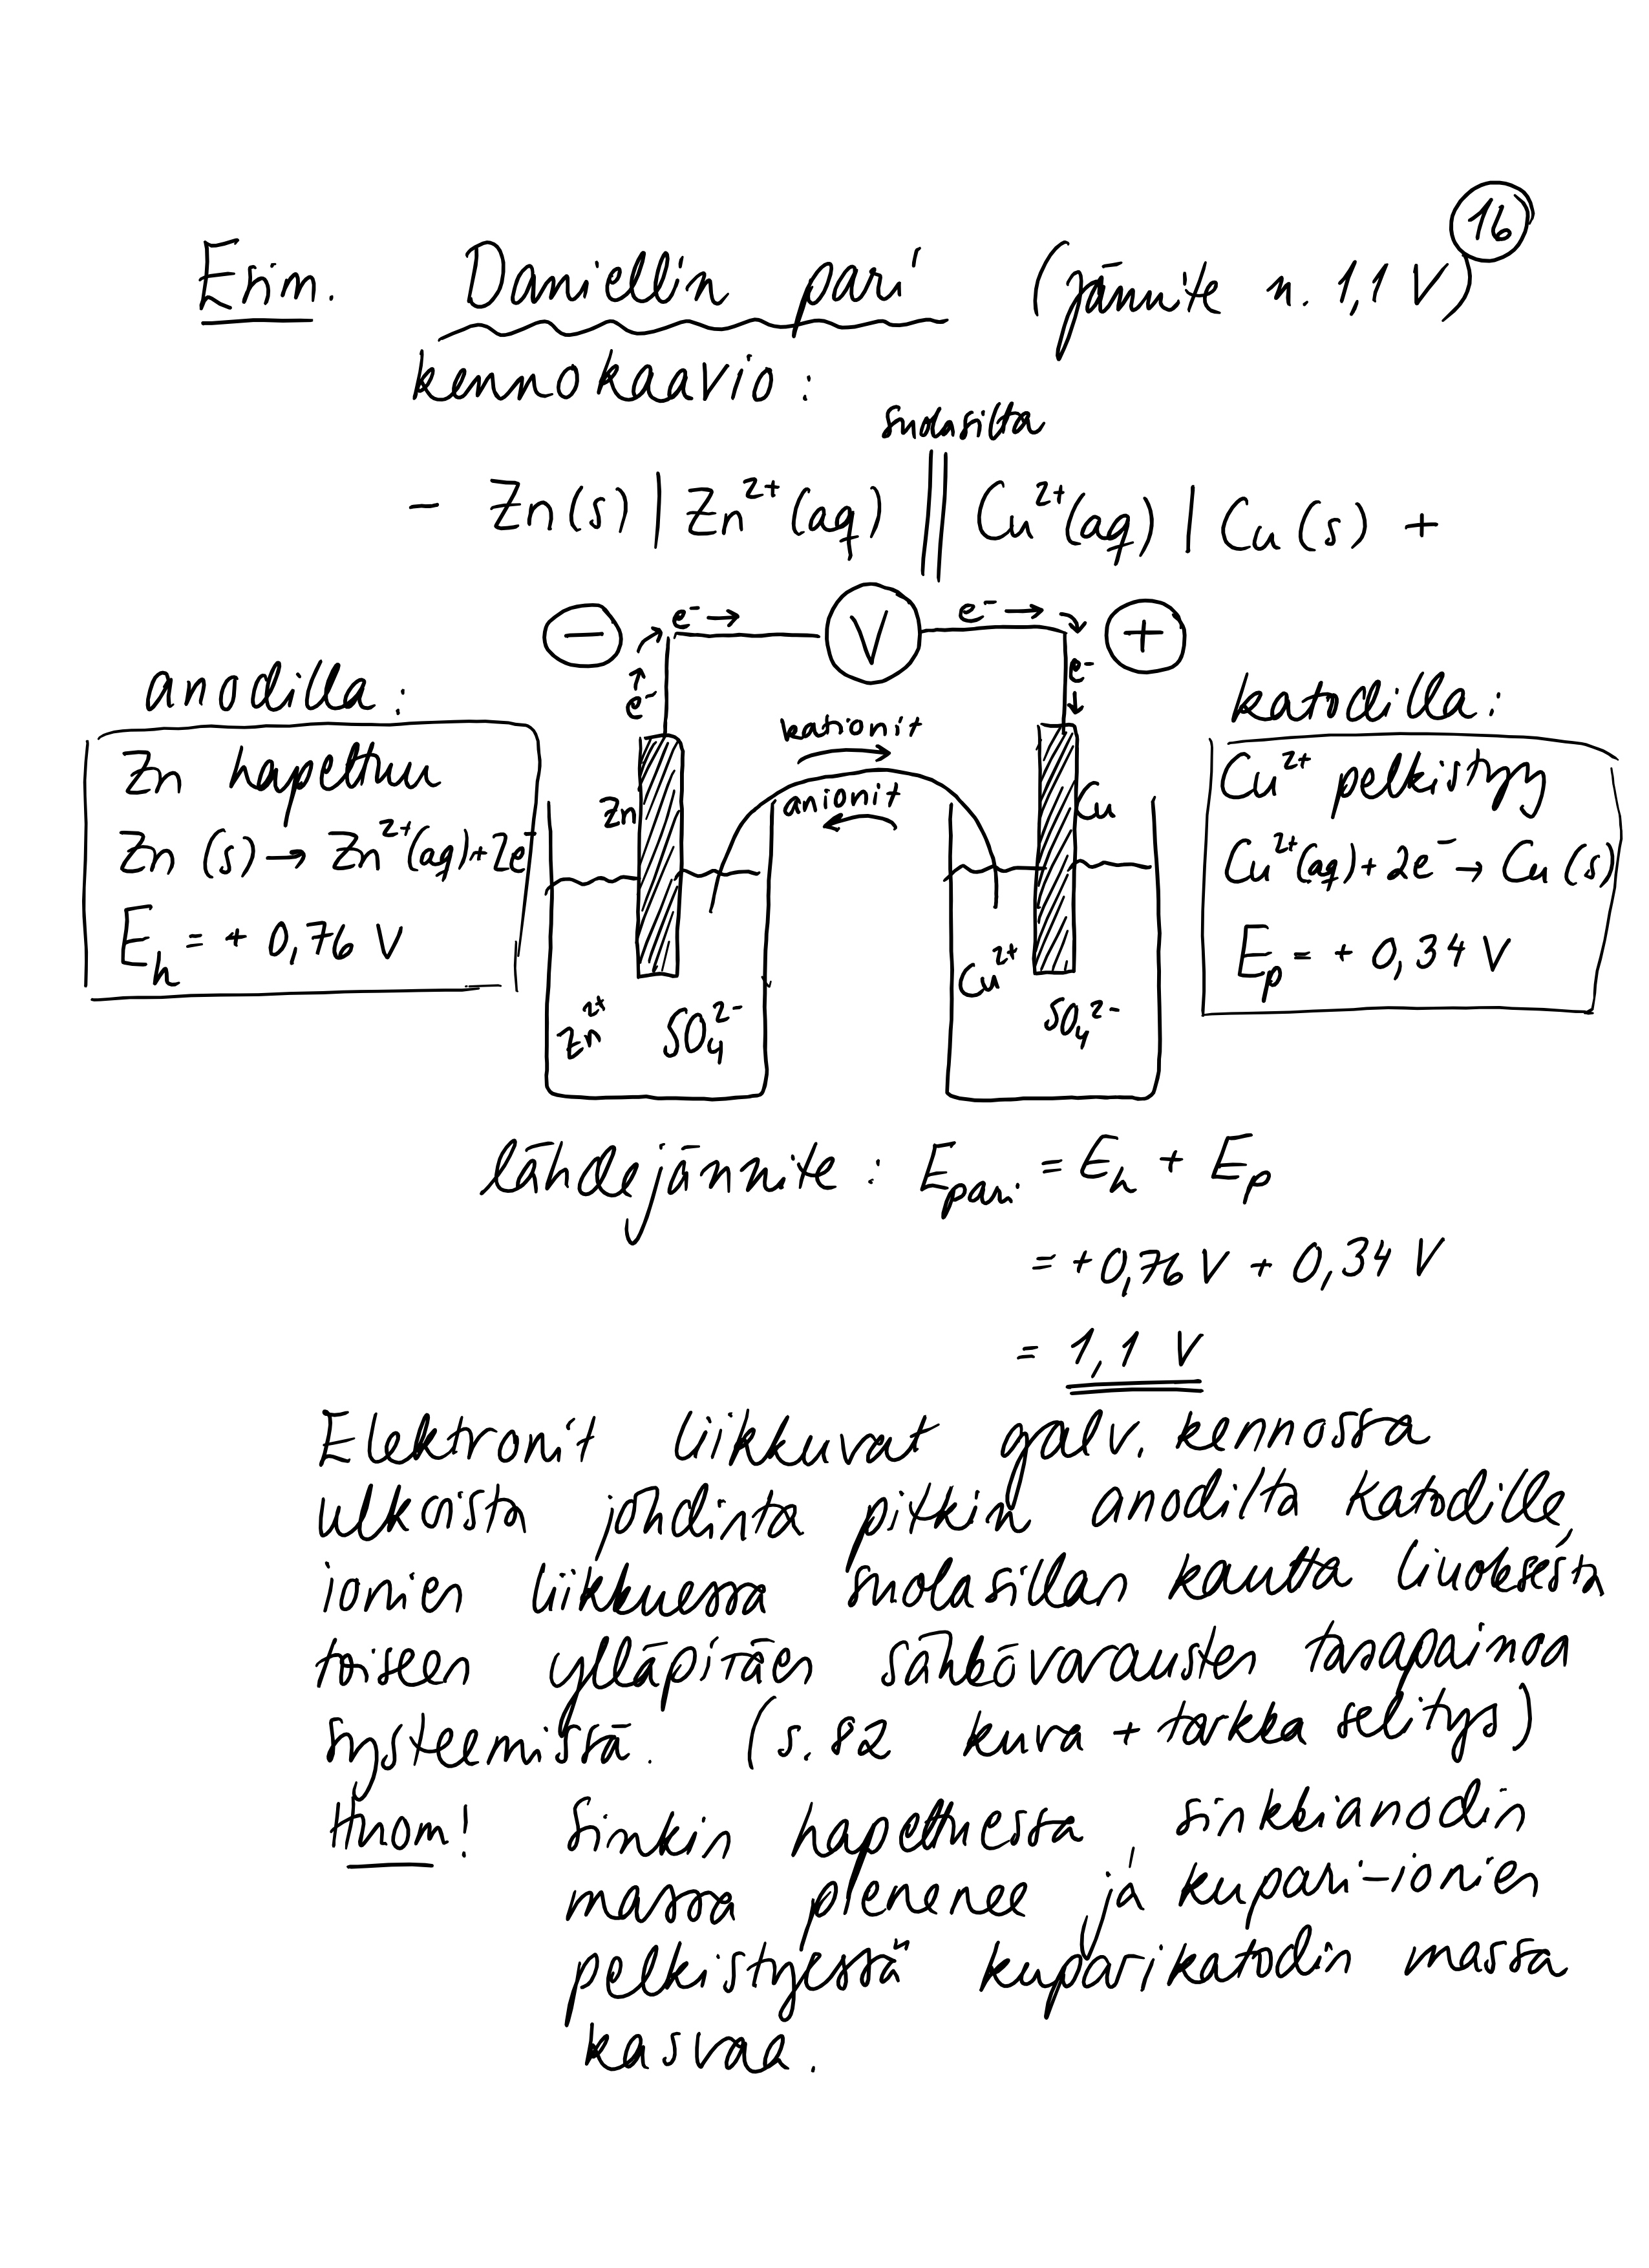 16
Esim. Daniellin pari (jännite n. 1,1 V)
kennokaavio:
suolasilta
- Zn(s) | Zn²⁺(aq) || Cu²⁺(aq) | Cu(s) +
− e⁻ → V e⁻ → +
e⁻ → e⁻ →
anodilla:
Zn hapettuu
Zn (s) → Zn²⁺(aq) + 2e⁻
E_h = + 0,76 V
kationit
anionit
Zn
Cu
Zn²⁺ SO₄²⁻
Cu²⁺ SO₄²⁻
katodilla:
Cu²⁺ pelkistyy
Cu²⁺(aq) + 2e⁻ → Cu (s)
E_p = + 0,34 V
lähdejännite: E_pari = E_h + E_p
= +0,76 V + 0,34 V
= 1,1 V
Elektronit liikkuvat galv. kennossa
ulkoista johdinta pitkin anodilta katodille,
ionien liikkuessa suolasillan kautta liuoksesta
toiseen ylläpitäen sähkövarausten tasapainoa
systeemissä. (s. 82 kuva + tarkka selitys)
Huom! Sinkin hapettuessa, sinkkianodin
massa pienenee ja kupari-ionien
pelkistyessä kuparikatodin massa
kasvaa.